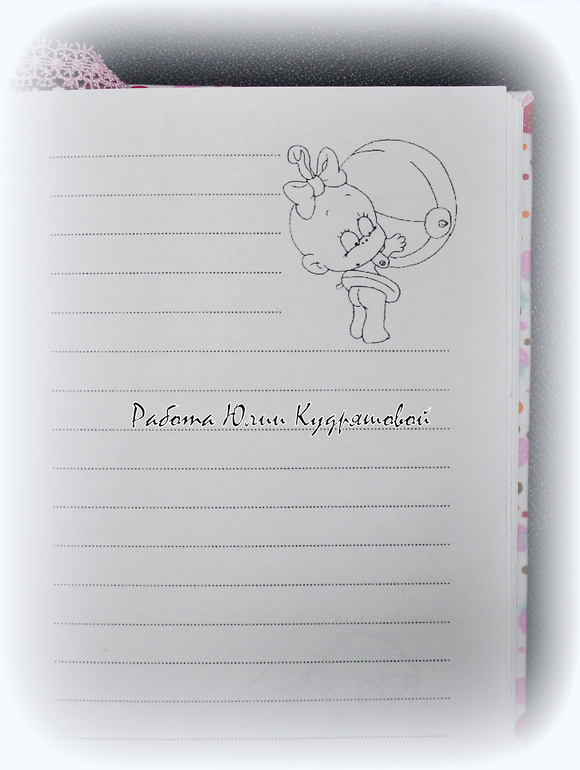 Работа Юлии Кудряшовой